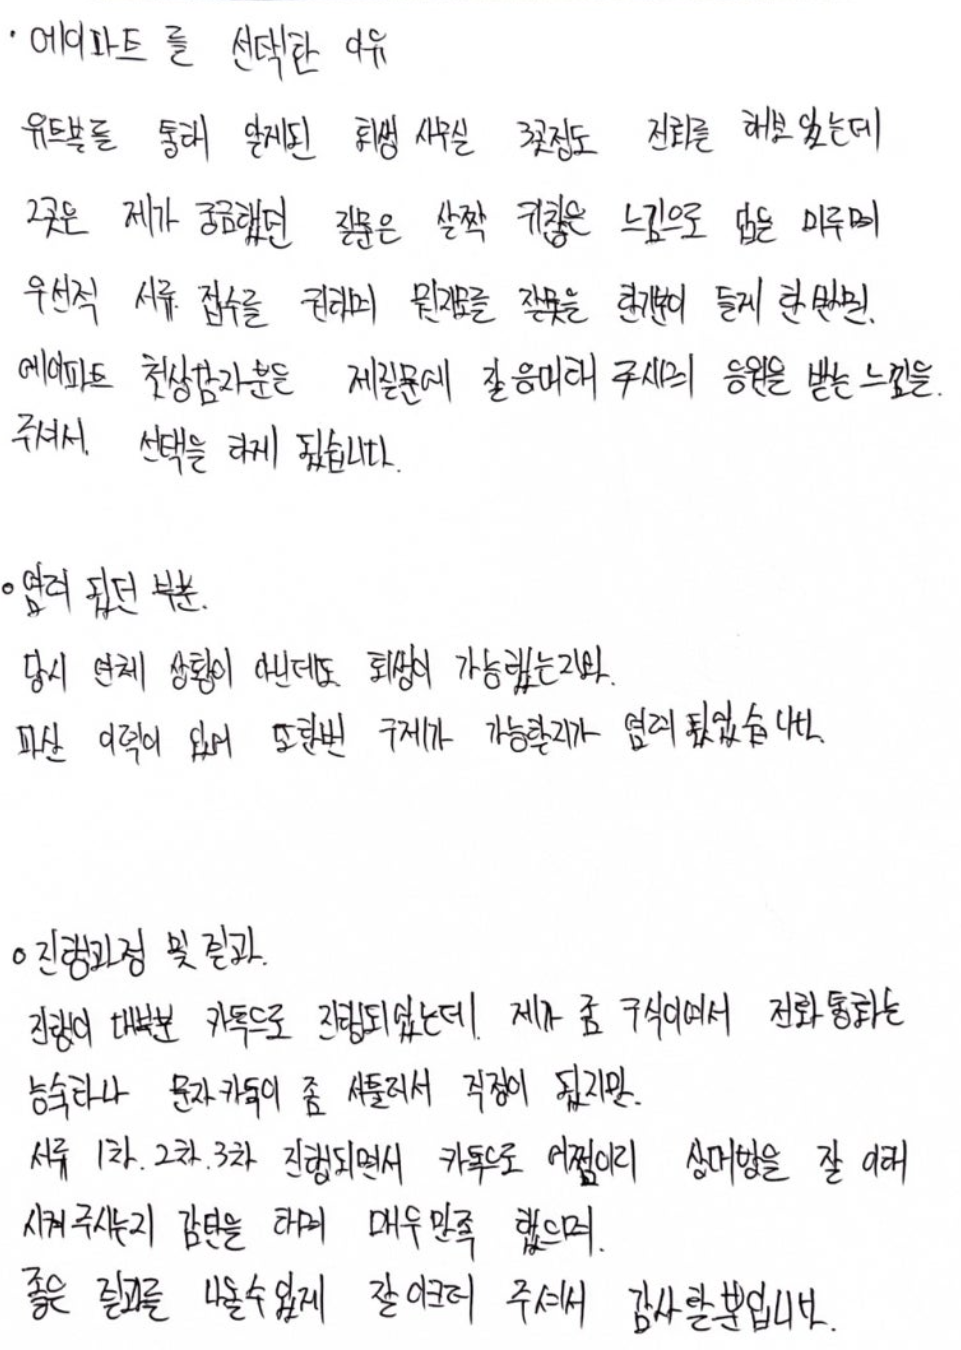 · 에이파트를 선택한 이유
유트브를 통해 알게된 회생 사무실 3곳정도 전화를 해보았는데
2곳은 제가 궁금했던 질문은 살짝 귀찮은 느낌으로 답을 미루며
우선적 서류 접수를 권하며 뭔지모를 잘못을 한기분이 들게 한 반면.
에이파트 첫상담자분은 제질문에 잘 응대해 주시며 응원을 받는 느낌을.
주셔서. 선택을 하게 됬습니다.
○ 염려 됬던 부분.
당시 연체 상황이 아닌데도 회생이 가능했는지와.
파산 이력이 있어 또한번 구제가 가능할지가 염려 됬었습니다.
○ 진행과정 및 결과.
진행이 대부분 카톡으로 진행되었는데. 제가 좀 구식이여서 전화통화는
능숙하나 문자카톡이 좀 서툴러서 걱정이 됬지만.
서류 1차. 2차. 3차 진행되면서 카톡으로 어쩜이리 상대방을 잘 이해
시켜주시는지 감탄을 하며 매우만족 했으며.
좋은 결과를 나올수있게 잘 이크러 주셔서 감사할뿐입니다.